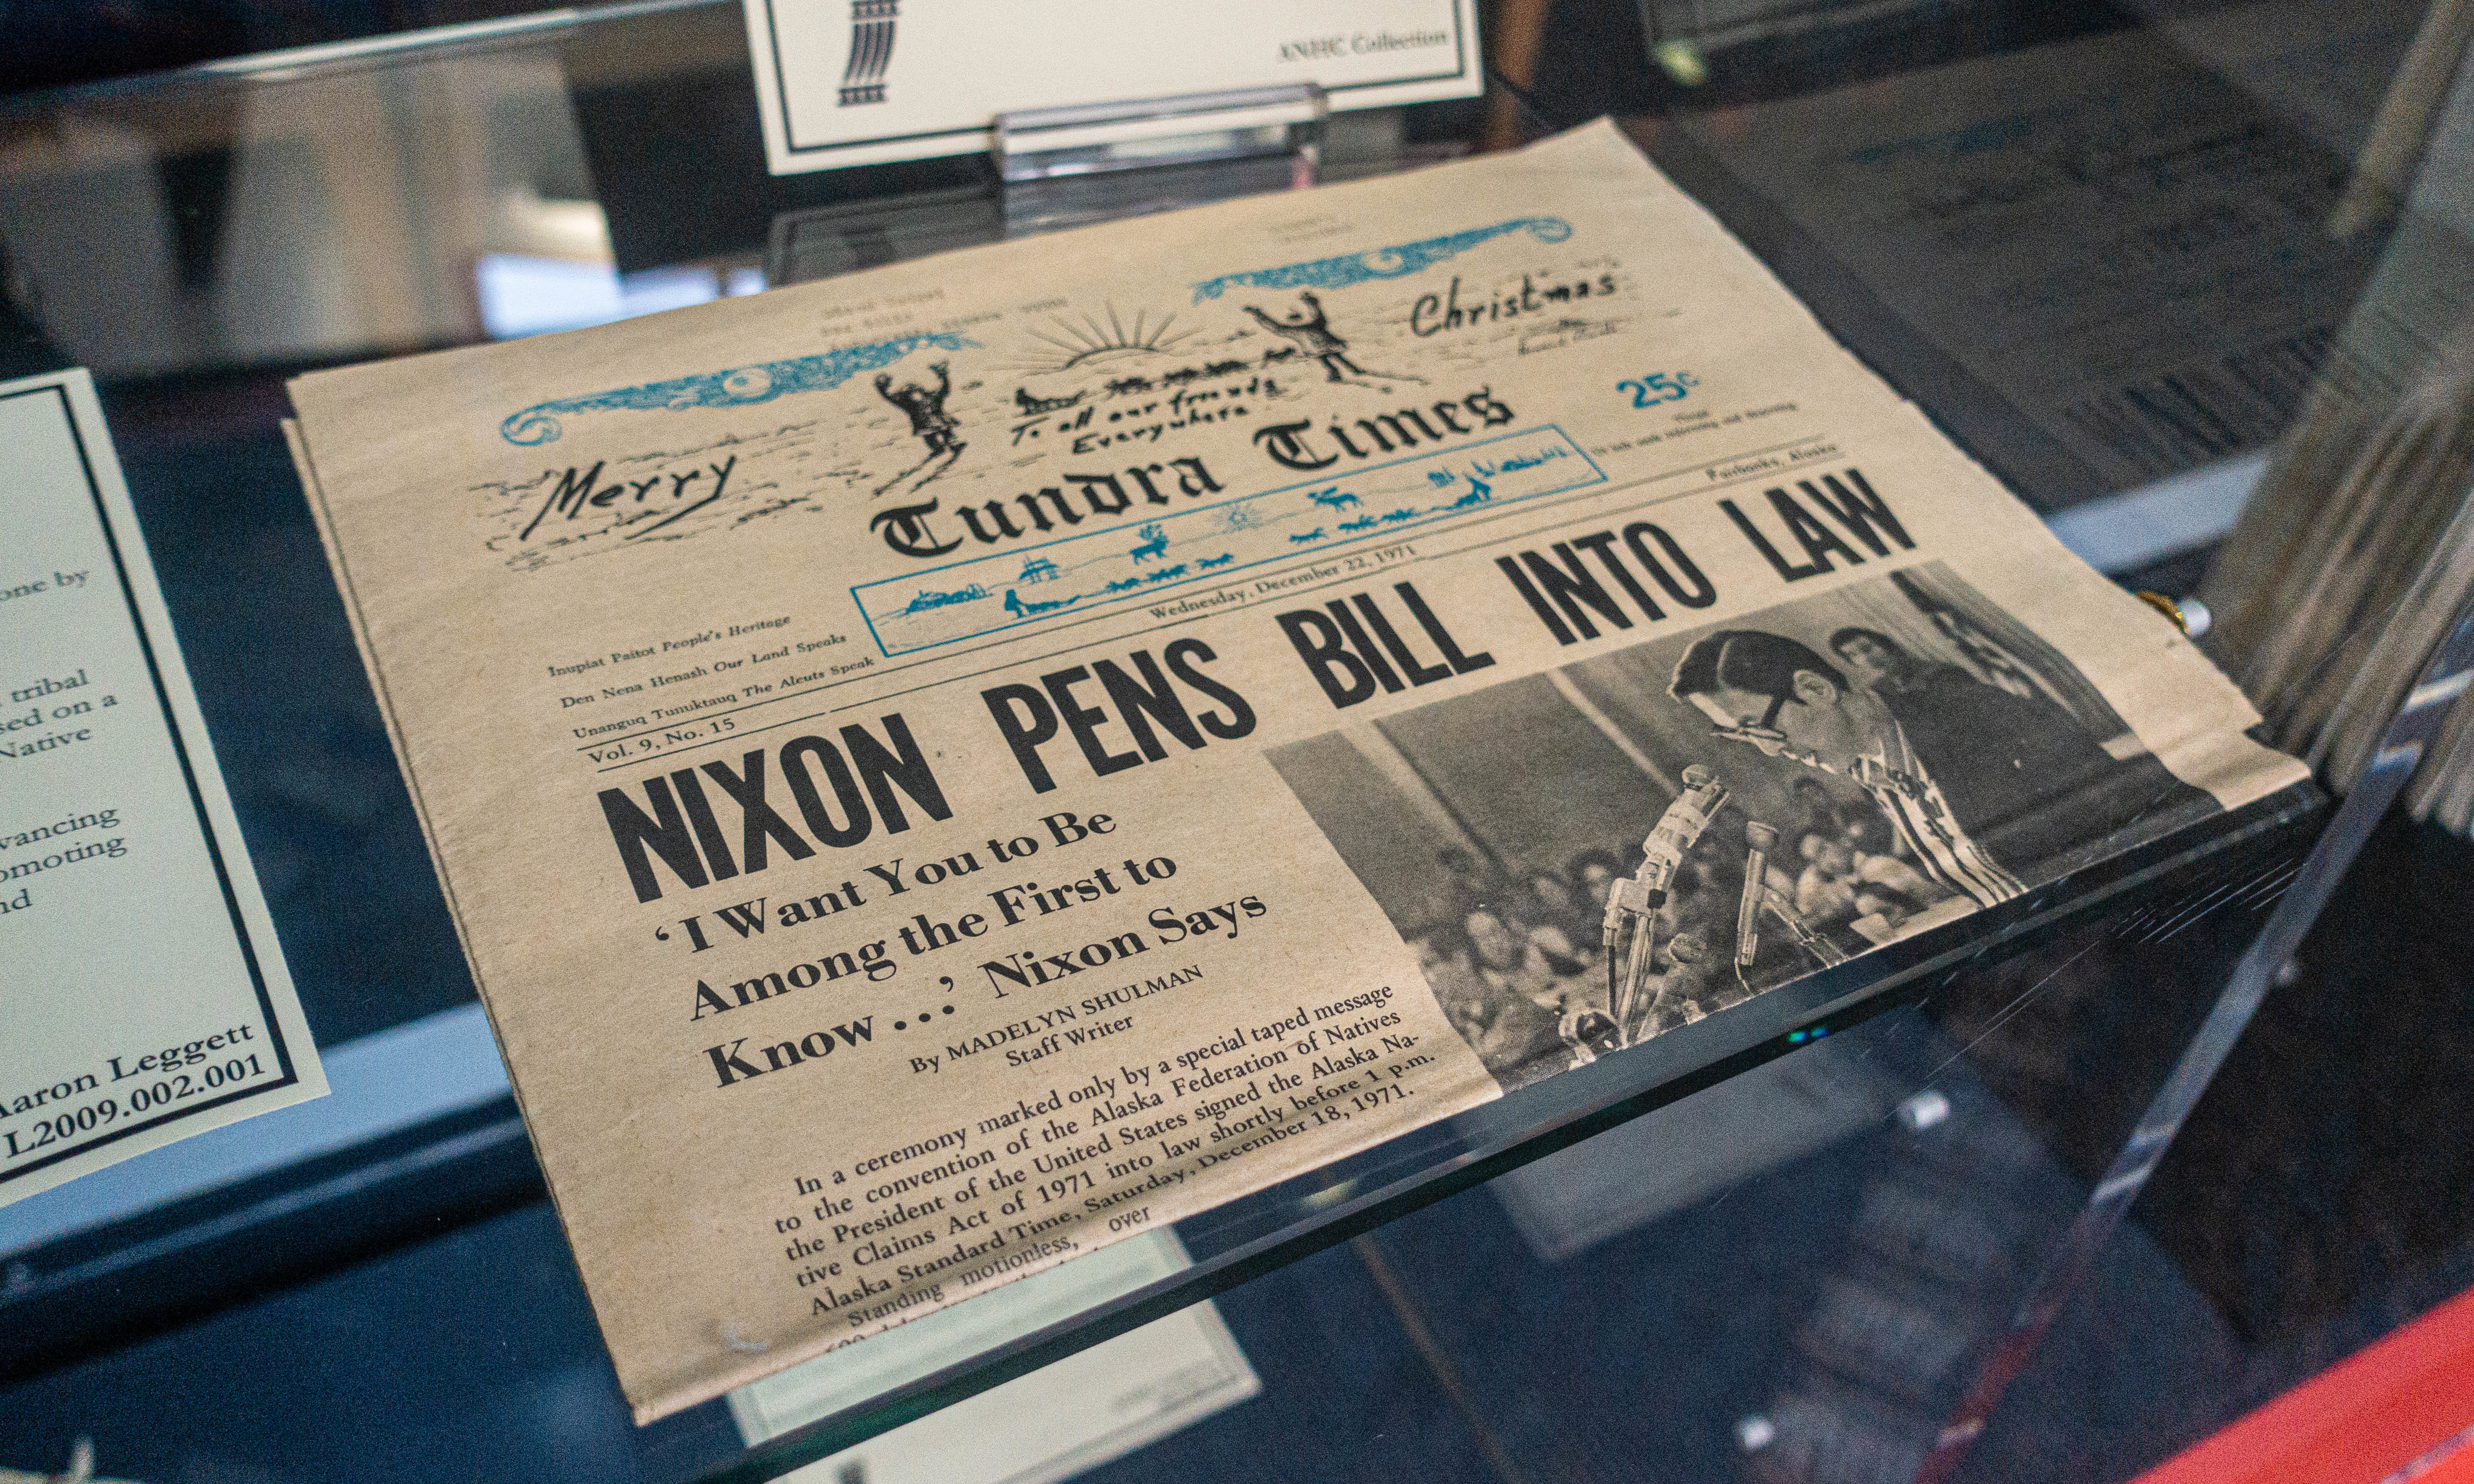 ANHC Collection
one by
tribal
sed on a
Native
vancing
omoting
nd
Aaron Leggett
L2009.002.001
Merry
Christmas
To all our friends
Everywhere
Tundra Times
25¢
Inupiat Paitot People's Heritage
Den Nena Henash Our Land Speaks
Unanguq Tunuktauq The Aleuts Speak
Vol. 9, No. 15
Wednesday, December 22, 1971
Fairbanks, Alaska
NIXON PENS BILL INTO LAW
‘I Want You to Be
Among the First to
Know . . .’ Nixon Says
By MADELYN SHULMAN
Staff Writer
In a ceremony marked only by a special taped message
to the convention of the Alaska Federation of Natives
the President of the United States signed the Alaska Na-
tive Claims Act of 1971 into law shortly before 1 p.m.
Alaska Standard Time, Saturday, December 18, 1971.
Standing motionless, over